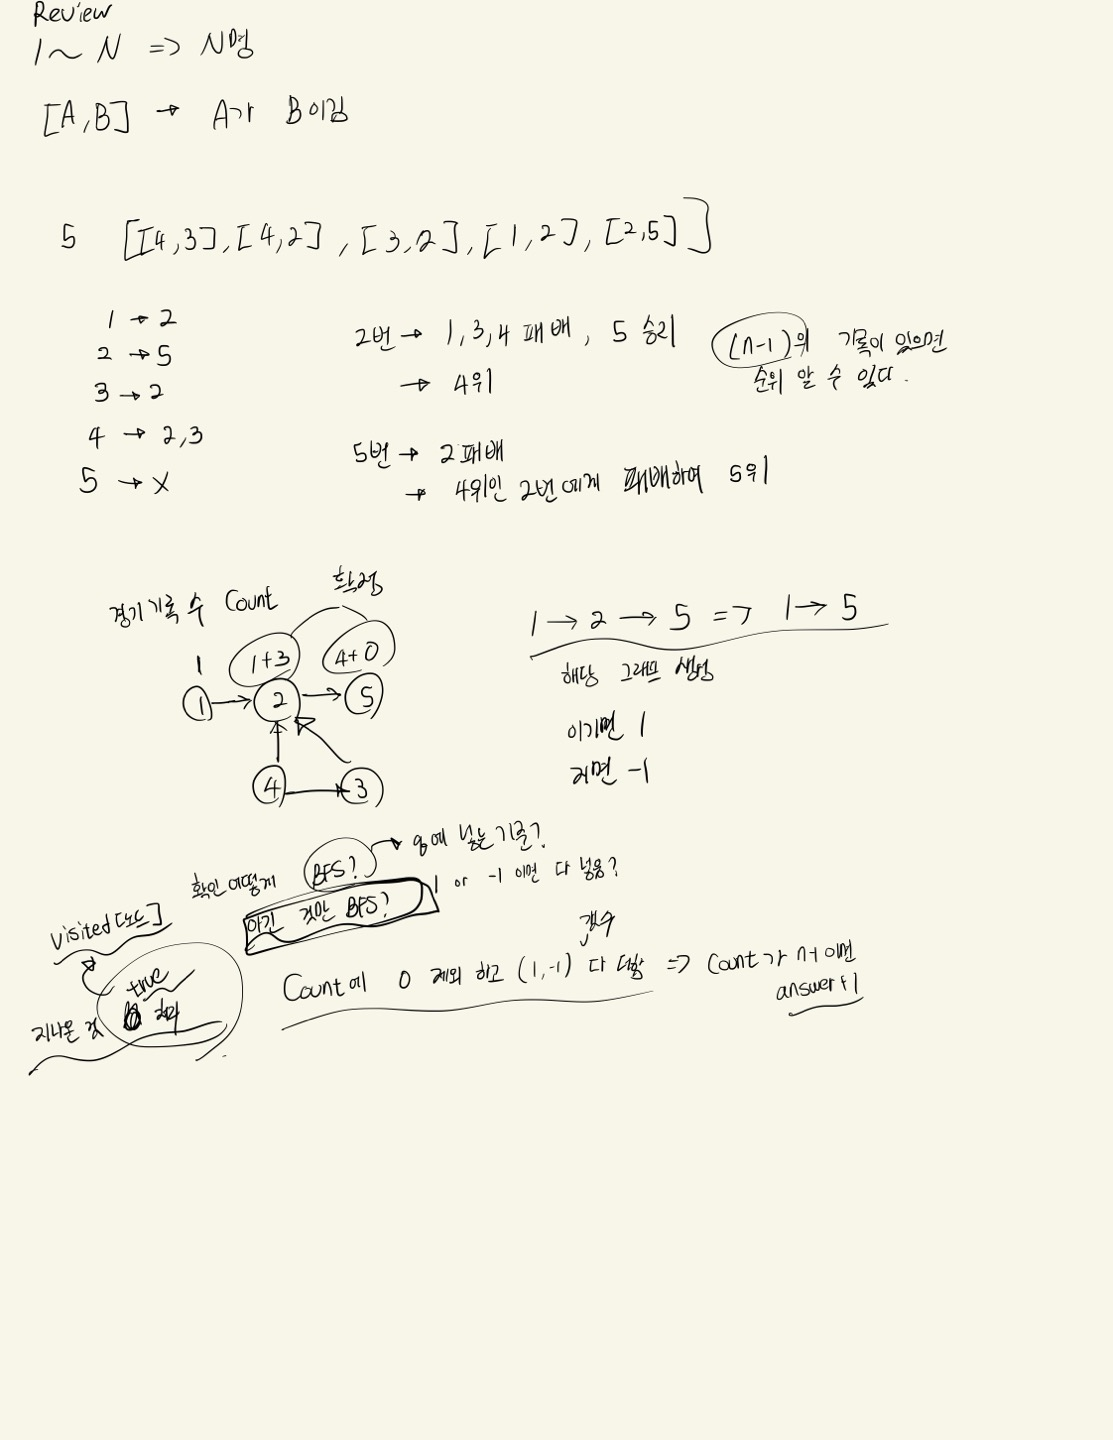 Review
1 ~ N => N명
[A,B] → A가 B이김
5 [[4,3],[4,2],[3,2],[1,2],[2,5]]
1 → 2
2 → 5
3 → 2
4 → 2,3
5 → X
2번 → 1,3,4 패배, 5 승리
→ 4위
(n-1)의 기록이 있으면
순위 알 수 있다.
5번 → 2패배
→ 4위인 2번에게 패배하여 5위
경기기록 수 Count
확정
1 1+3 4+0
1 2 5
4 3
1 → 2 → 5 => 1 → 5
해당 그래프 생성
이기면 1
지면 -1
확인 어떻게 BFS? → q에 넣는 기준?
1 or -1 이면 다 넣음?
이긴 것만 BFS?
visited[노드]
true
지나온 것
갯수
Count에 0 제외 하고 (1,-1) 다 더함 => Count가 n-1 이면
answer+1